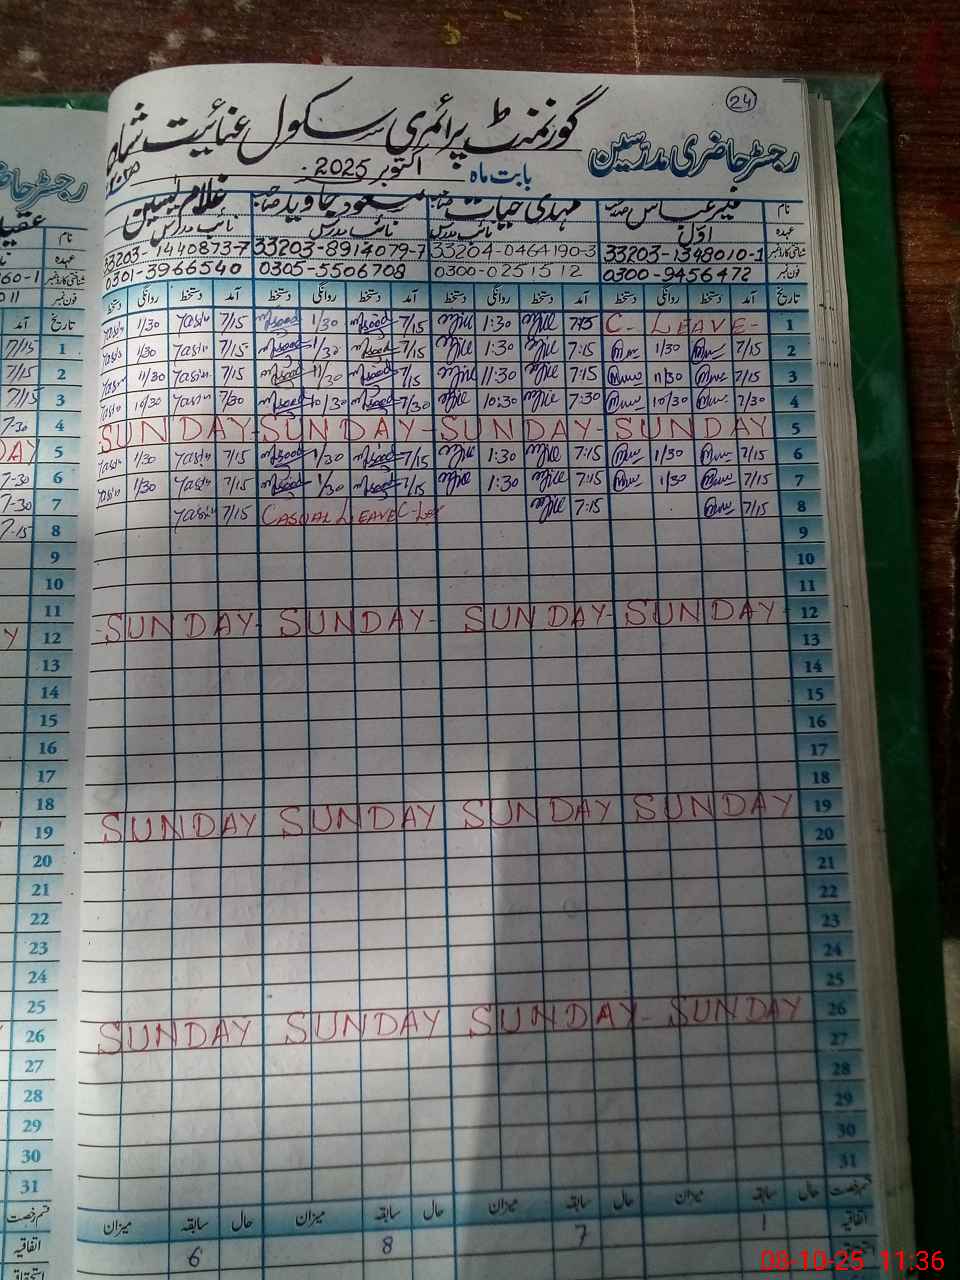 24
گورنمنٹ پرائمری سکول عنائیت شاہ
رجسٹر حاضری مدرسین
بابت ماہ اکتوبر 2025
نام قنبر عباس مہدی حیات مسعود جاوید غلام یٰسین
عہدہ اوّل نائب مدرس نائب مدرس نائب مدرس
شناختی کارڈ نمبر 33203-1348010-1 33204-0464190-3 33203-8914079-7 33203-1440873-7
فون نمبر 0300-9456472 0300-0251512 0305-5506708 0301-3966540
تاریخ آمد دستخط روانگی دستخط آمد دستخط روانگی دستخط آمد دستخط روانگی دستخط آمد دستخط روانگی دستخط
1/30 Yasin 7/15 Masood 1/30 Masood 7/15 1:30 7:15 C- LEAVE- 1
1/30 Yasin 7/15 Masood 1/30 Masood 7/15 1:30 7:15 1/30 7/15 2
11/30 Yasin 7/15 Masood 11/30 Masood 7/15 11:30 7:15 11/30 7/15 3
10/30 Yasin 7/30 Masood 10/30 Masood 7/30 10:30 7:30 10/30 7/30 4
SUNDAY-SUNDAY-SUNDAY-SUNDAY 5
1/30 Yasin 7/15 Masood 1/30 Masood 7/15 1:30 7:15 1/30 7/15 6
1/30 Yasin 7/15 Masood 1/30 Masood 7/15 1:30 7:15 1/30 7/15 7
Yasin 7/15 CASUAL LEAVE 7:15 7/15 8
9
10
11
-SUNDAY- SUNDAY- SUNDAY- SUNDAY- 12
13
14
15
16
17
18
SUNDAY SUNDAY SUNDAY SUNDAY 19
20
21
22
23
24
25
SUNDAY SUNDAY SUNDAY- SUNDAY 26
27
28
29
30
31
قسم رخصت حال سابقہ میزان حال سابقہ میزان حال سابقہ میزان حال سابقہ میزان
اتفاقیہ 1 7 8 6
رجسٹر حاضری
نام
عہدہ
شناختی کارڈ نمبر
فون نمبر
تاریخ آمد
7/15 1
7/15 2
7/15 3
7-30 4
DAY 5
7-30 6
7-30 7
7-15 8
9
10
11
Y 12
13
14
15
16
17
18
19
20
21
22
23
24
25
26
27
28
29
30
31
قسم رخصت
اتفاقیہ
08-10-25 11:36